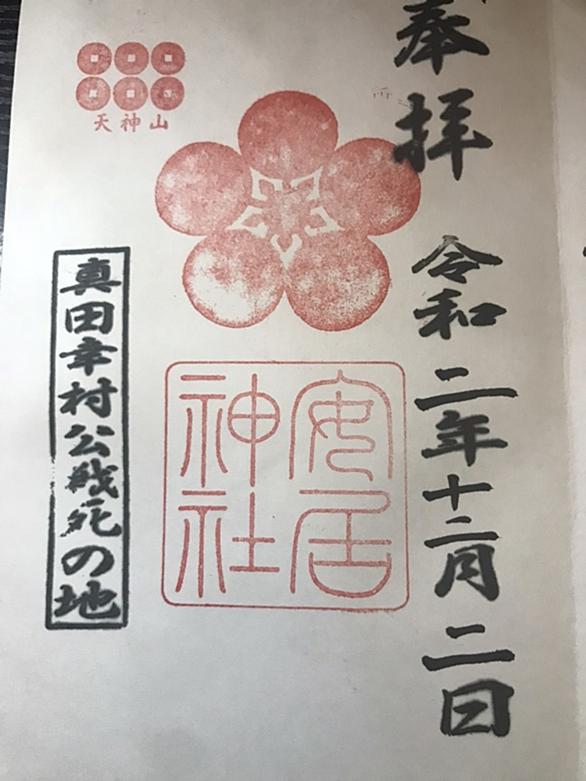 奉拝
令和二年十二月二日
天神山
安居神社
真田幸村公戦死の地